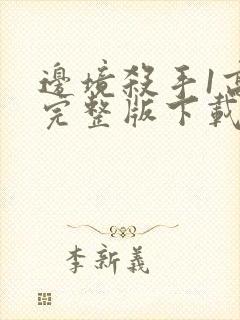 邊境殺手1高
完整版下載
李新義